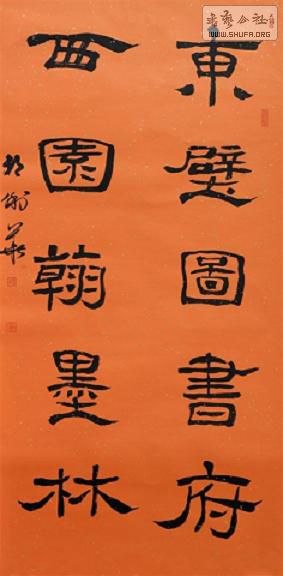 東壁圖書府
西園翰墨林
WWW.SHUFA.ORG